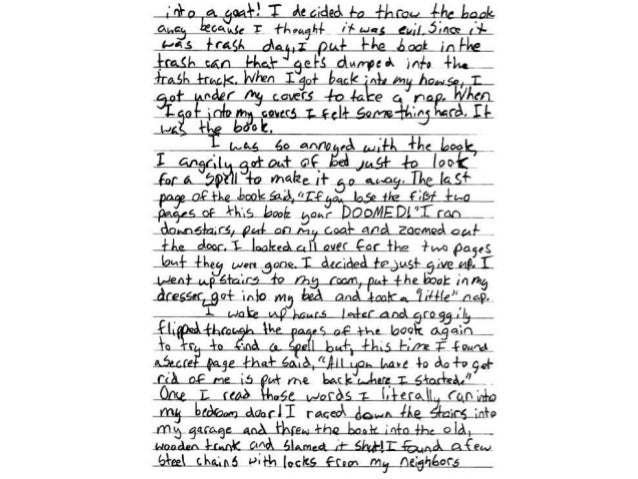 into a goat! I decided to throw the book
away because I thought it was evil. Since it
was trash day, I put the book in the
trash can that gets dumped into the
trash truck. When I got back into my house, I
got under my covers to take a nap. When
I got into my covers I felt something hard. It
was the book.
I was so annoyed with the book,
I angrily got out of bed just to look
for a spell to make it go away. The last
page of the book said, "If you lose the fist two
pages of this book your DOOMED!" I ran
downstairs, put on my coat and zoomed out
the door. I looked all over for the two pages
but they were gone. I decided to just give up. I
went upstairs to my room, put the book in my
dresser, got into my bed and took a "little" nap.
I woke up hours later and groggily
flipped through the pages of the book again
to try to find a spell but, this time I found
a secret page that said, "All you have to do to get
rid of me is put me back where I started."
Once I read those words I literally ran into
my bedroom door! I raced down the stairs into
my garage and threw the book into the old,
wooden trunk and slamed it shut! I found a few
steel chains with locks from my neighbors